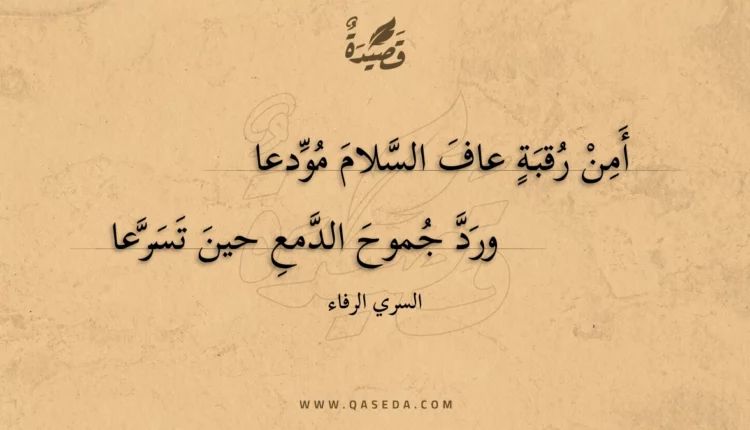 قَصِيدَةٌ
أَمِنْ رُقبَةٍ عافَ السَّلامَ مُوِّدعا
ورَدَّ جُموحَ الدَّمعِ حينَ تَسَرَّعا
السري الرفاء
WWW.QASEDA.COM